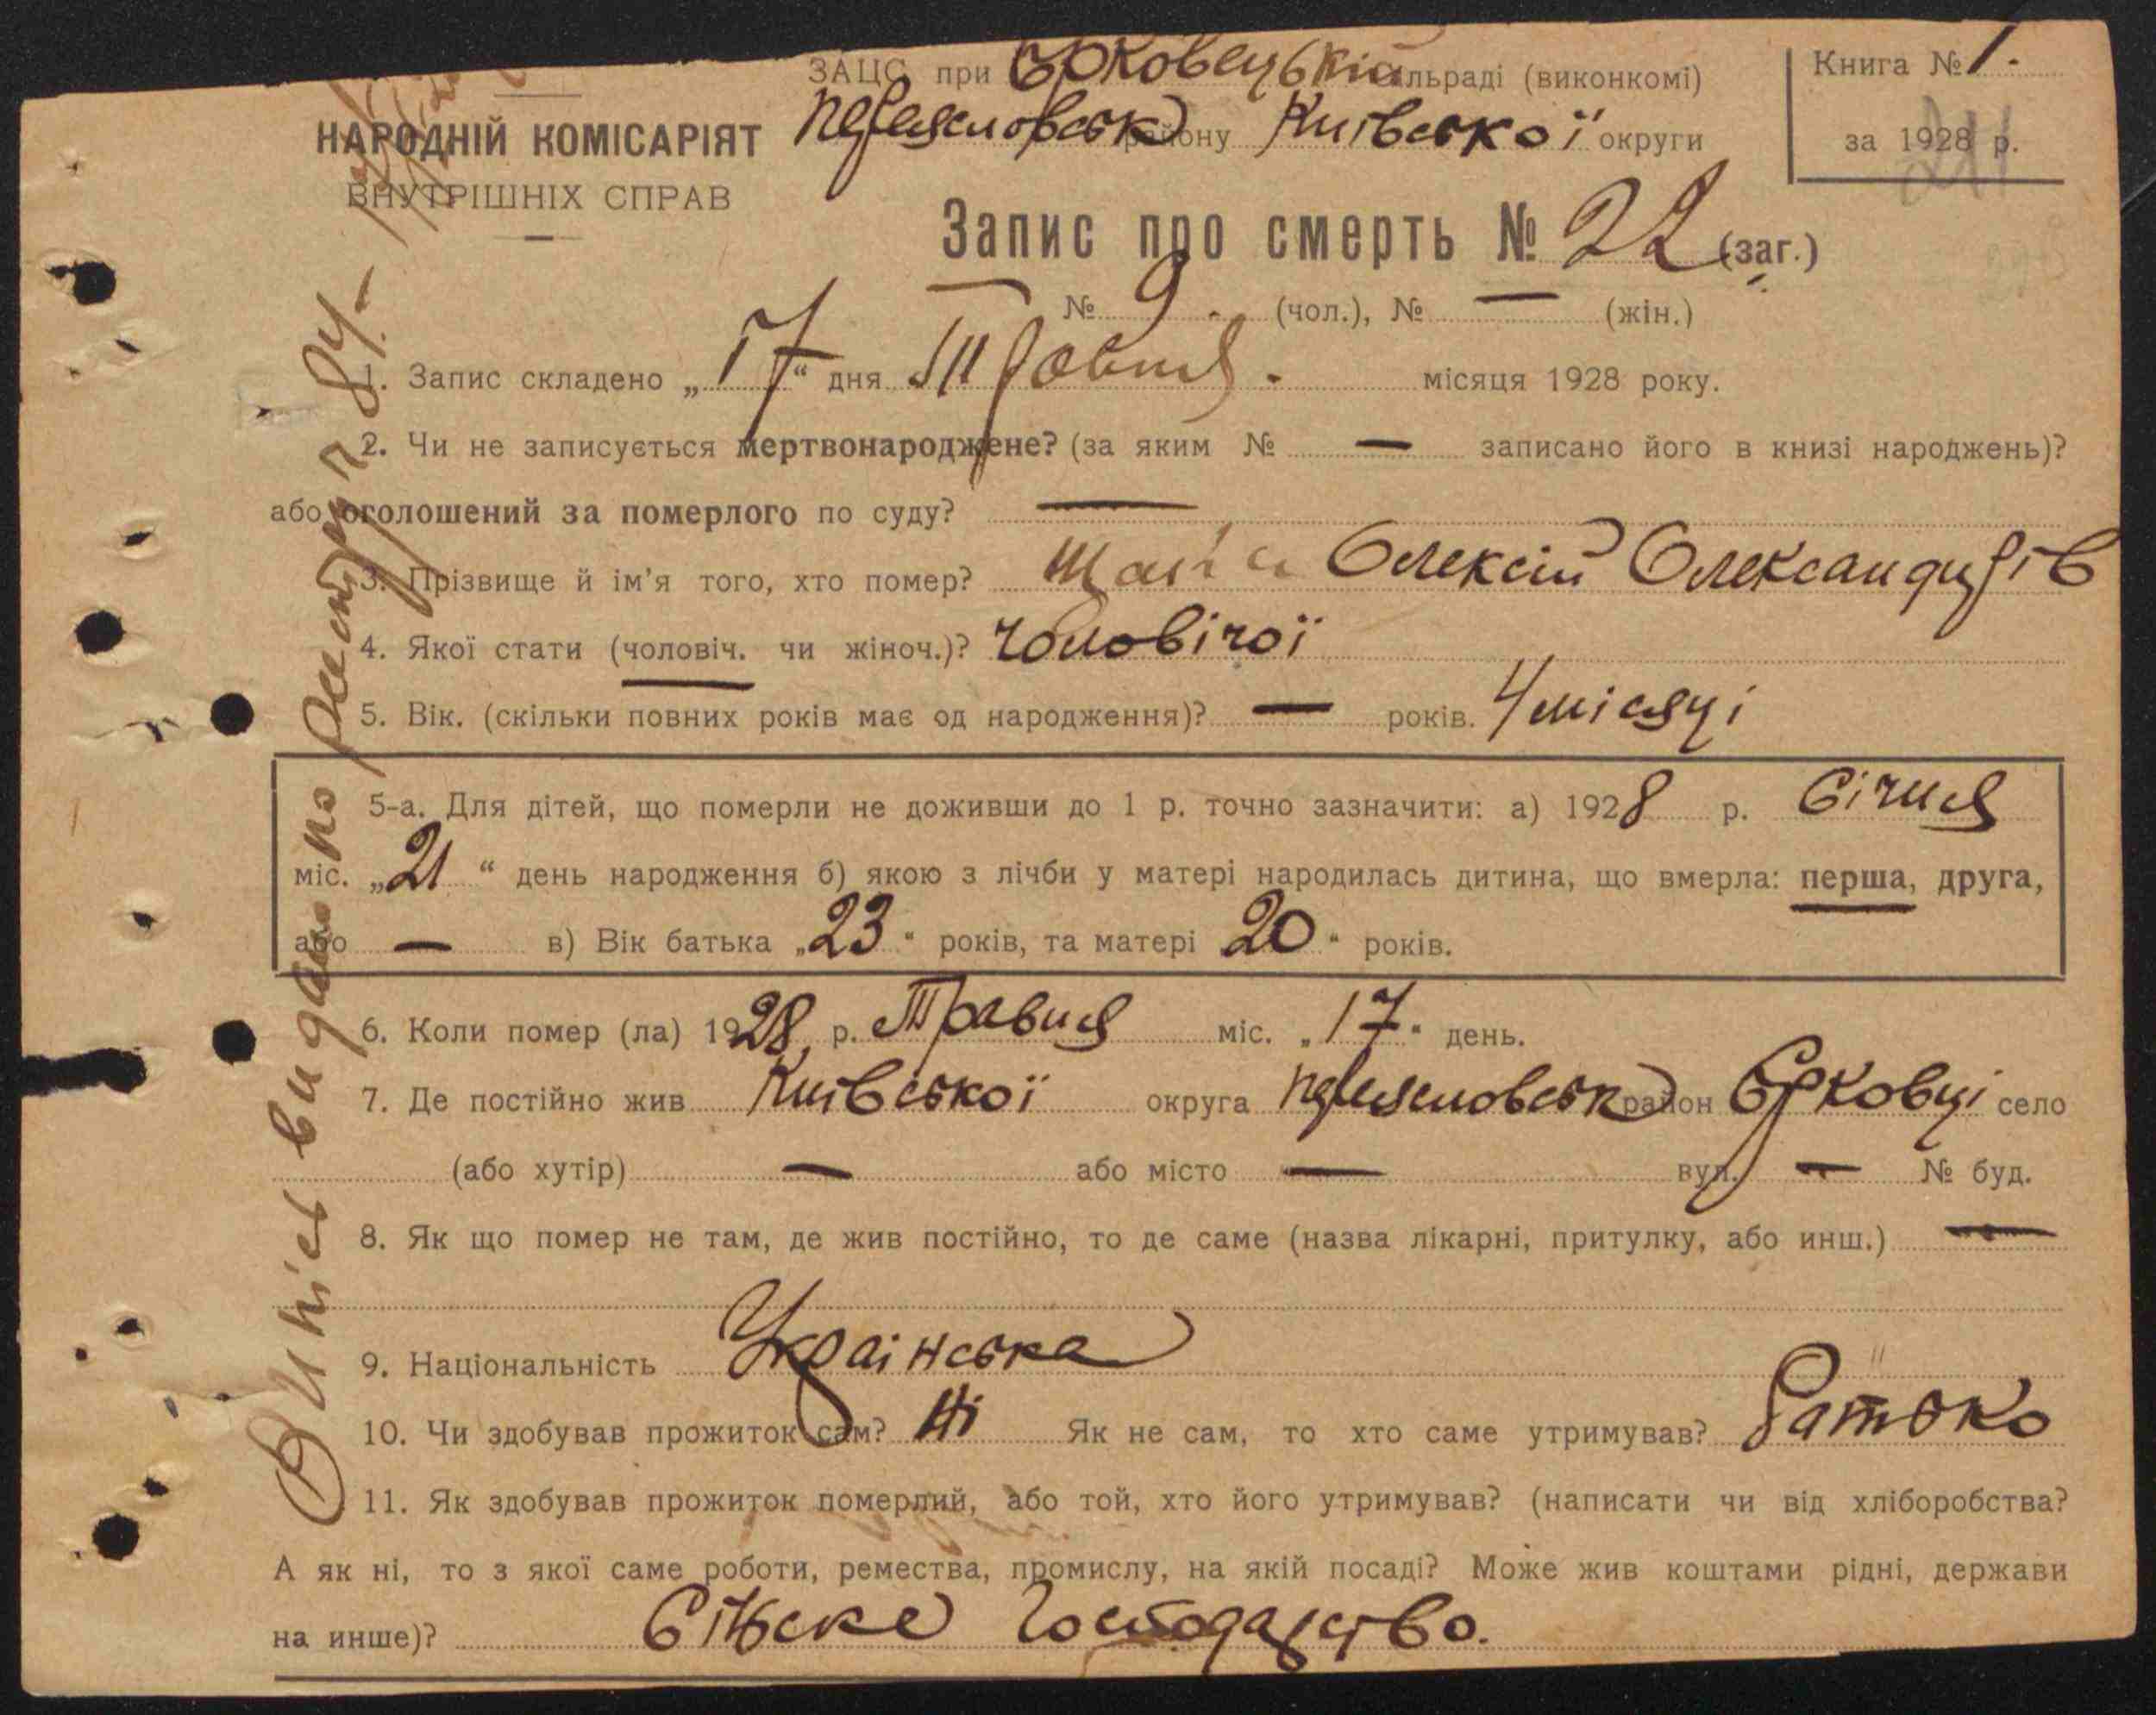 ЗАЦС при Єрковецькій сільраді (виконкомі)
Книга № 1.
НАРОДНІЙ КОМІСАРІЯТ
Переяславськ району Київської округи
за 1928 р.
ВНУТРІШНІХ СПРАВ
Запис про смерть № 22 (заг.)
№ 9. (чол.), № — (жін.)
1. Запис складено „17“ дня Травня. місяця 1928 року.
2. Чи не записується мертвонароджене? (за яким № — записано його в книзі народжень)?
або оголошений за померлого по суду? —
3. Прізвище й ім'я того, хто помер? Олексій Олександрів
4. Якої стати (чоловіч. чи жіноч.)? чоловічої
5. Вік. (скільки повних років має од народження)? — років. 4 місяці
5-а. Для дітей, що померли не доживши до 1 р. точно зазначити: а) 1928 р. Січня
міс. „21“ день народження б) якою з лічби у матері народилась дитина, що вмерла: перша, друга,
або — в) Вік батька „23“ років, та матері 20“ років.
6. Коли помер (ла) 1928 р. Травня міс. „17“ день.
7. Де постійно жив Київської округа Переяславськ район Єрковці село
(або хутір) — або місто — вул. — № буд.
8. Як що помер не там, де жив постійно, то де саме (назва лікарні, притулку, або инш.) —
9. Національність Українська
10. Чи здобував прожиток сам? Ні Як не сам, то хто саме утримував? Батько
11. Як здобував прожиток померлий, або той, хто його утримував? (написати чи від хліборобства?
А як ні, то з якої саме роботи, ремества, промислу, на якій посаді? Може жив коштами рідні, держави
на инше)? Сільске Господарство.
Випись видано